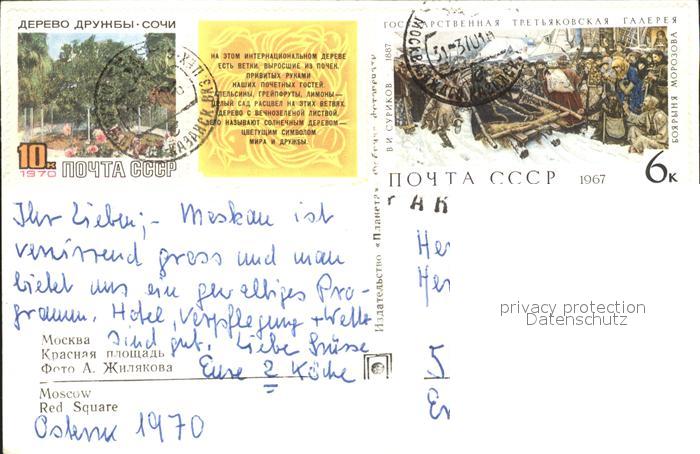 ДЕРЕВО ДРУЖБЫ • СОЧИ
10к
1970
ПОЧТА СССР
НА ЭТОМ ИНТЕРНАЦИОНАЛЬНОМ ДЕРЕВЕ
ЕСТЬ ВЕТКИ, ВЫРОСШИЕ ИЗ ПОЧЕК,
ПРИВИТЫХ РУКАМИ
НАШИХ ПОЧЕТНЫХ ГОСТЕЙ.
АПЕЛЬСИНЫ, ГРЕЙПФРУТЫ, ЛИМОНЫ—
ЦЕЛЫЙ САД РАСЦВЕЛ НА ЭТИХ ВЕТВЯХ.
ДЕРЕВО С ВЕЧНОЗЕЛЕНОЙ ЛИСТВОЙ,
ЕГО НАЗЫВАЮТ СОЛНЕЧНЫМ ДЕРЕВОМ—
ЦВЕТУЩИМ СИМВОЛОМ
МИРА И ДРУЖБЫ.
ГОСУДАРСТВЕННАЯ ТРЕТЬЯКОВСКАЯ ГАЛЕРЕЯ
В.И СУРИКОВ 1887
БОЯРЫНЯ МОРОЗОВА
ПОЧТА СССР 1967
6к
Ihr Lieben;- Moskau ist
verwirrend gross und man
bietet uns ein gewaltiges Pro-
gramm. Hotel, Verpflegung + Wetter
sind gut. Liebe Grüsse
Eure 2 Köche
Москва
Красная площадь
Фото А. Жилякова
Moscow
Red Square
Ostern 1970
Издательство «Планета»
Her
Her
5
privacy protection
Datenschutz